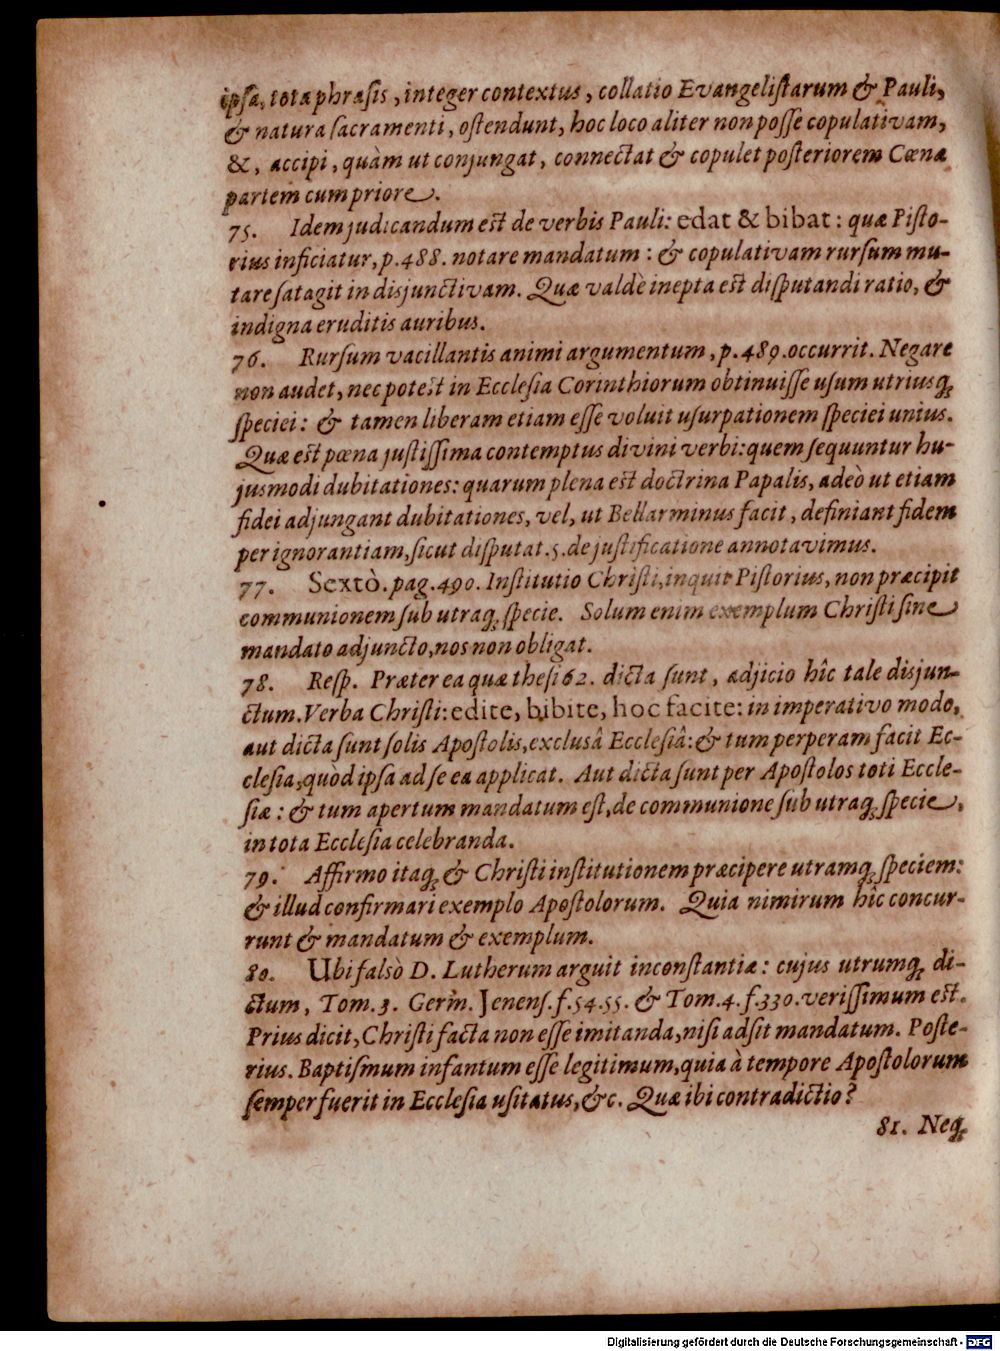 ipsa, tota phrasis, integer contextus, collatio Evangelistarum & Pauli,
& natura sacramenti, ostendunt, hoc loco aliter non posse copulativam,
&, accipi, quàm ut conjungat, connectat & copulet posteriorem Cœnæ
partem cum priore.
75. Idem judicandum est de verbis Pauli: edat & bibat: quæ Pisto-
rius inficiatur, p. 488. notare mandatum: & copulativam rursum mu-
tare satagit in disjunctivam. Quæ valdè inepta est disputandi ratio, &
indigna eruditis auribus.
76. Rursum vacillantis animi argumentum, p. 489. occurrit. Negare
non audet, nec potest in Ecclesia Corinthiorum obtinuisse usum utriusq;
speciei: & tamen liberam etiam esse voluit usurpationem speciei unius.
Quæ est pœna justissima contemptus divini verbi: quem sequuntur hu-
jusmodi dubitationes: quarum plena est doctrina Papalis, adeò ut etiam
fidei adjungant dubitationes, vel, ut Bellarminus facit, definiant fidem
per ignorantiam, sicut disputat. 5. de justificatione annotavimus.
77. Sextò. pag. 490. Institutio Christi, inquit Pistorius, non præcipit
communionem sub utraq; specie. Solum enim exemplum Christi sine
mandato adjuncto, nos non obligat.
78. Resp. Præter ea quæ thesi 62. dicta sunt, adjicio hîc tale disjun-
ctum. Verba Christi: edite, bibite, hoc facite: in imperativo modo,
aut dicta sunt solis Apostolis, exclusâ Ecclesiâ: & tum perperam facit Ec-
clesia, quòd ipsa ad se ea applicat. Aut dicta sunt per Apostolos toti Eccle-
siæ: & tum apertum mandatum est, de communione sub utraq; specie,
in tota Ecclesia celebranda.
79. Affirmo itaq; & Christi institutionem præcipere utramq; speciem:
& illud confirmari exemplo Apostolorum. Quia nimirum hîc concur-
runt & mandatum & exemplum.
80. Ubi falsò D. Lutherum arguit inconstantiæ: cujus utrumq; di-
ctum, Tom. 3. Germ. Jenens. f. 54. 55. & Tom. 4. f. 330. verissimum est.
Prius dicit, Christi facta non esse imitanda, nisi adsit mandatum. Poste-
rius. Baptismum infantum esse legitimum, quia à tempore Apostolorum
semper fuerit in Ecclesia usitatus, &c. Quæ ibi contradictio?
81. Neq;
Digitalisierung gefördert durch die Deutsche Forschungsgemeinschaft - DFG